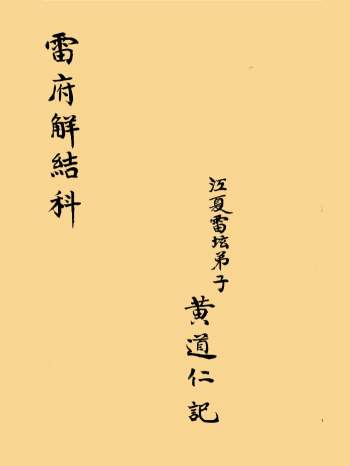 雷府解結科
江夏雷坛弟子
黄道仁記